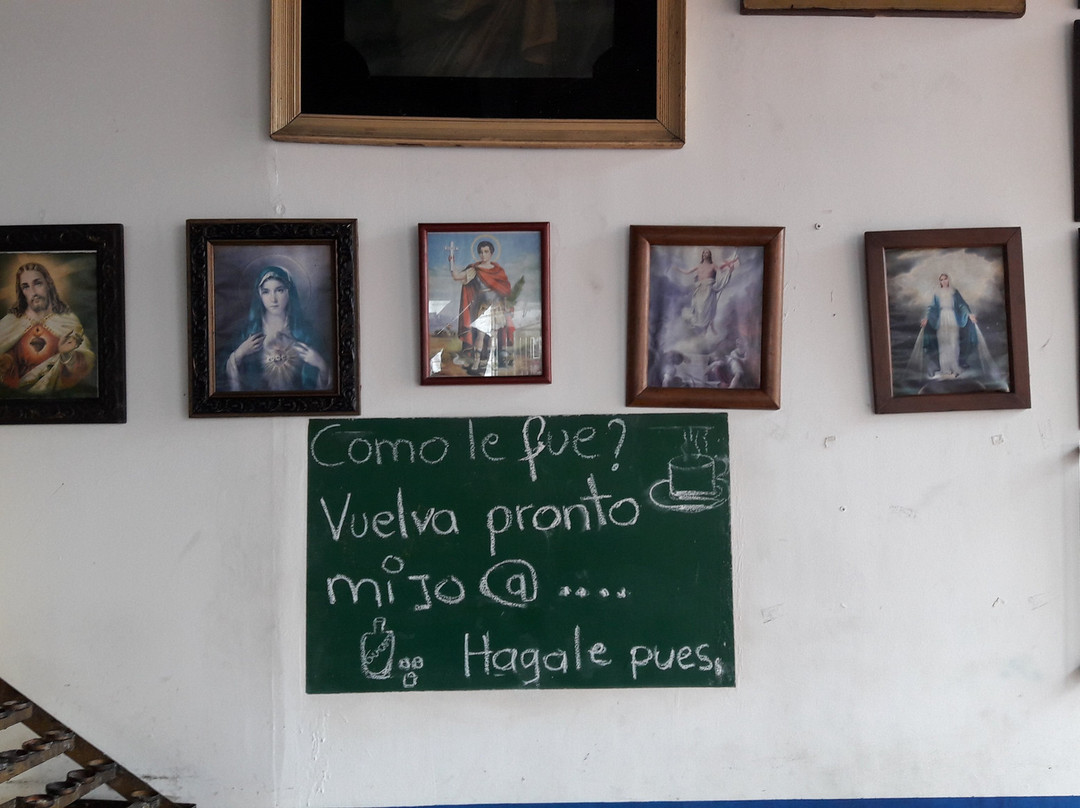 Como le fue?
Vuelva pronto
mijo @ ....
Hagale pues.